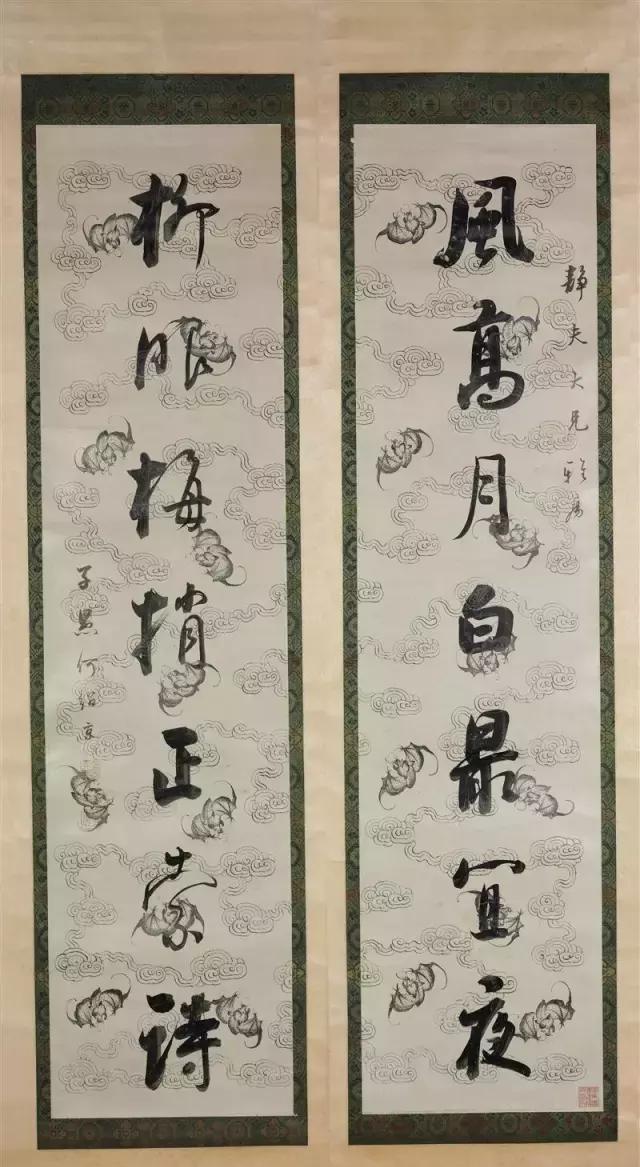 風高月白最宜夜
靜夫大兄雅屬
柳眼梅梢正索詩
子愚何紹京